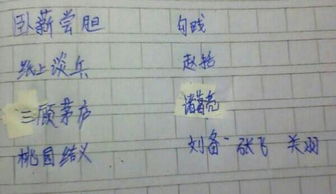 卧薪尝胆 勾践
纸上谈兵 赵括
三顾茅庐 诸葛亮
桃园结义 刘备 张飞 关羽